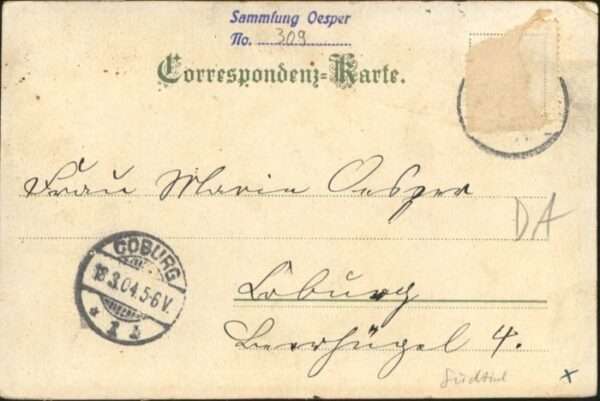 Sammlung Oesper
No. 309
Correspondenz-Karte.
Frau Marie Oesper
DA
COBURG
18.3.04.5-6V.
* 1 b
Coburg
Bierhügel 4.
Südtirol
x